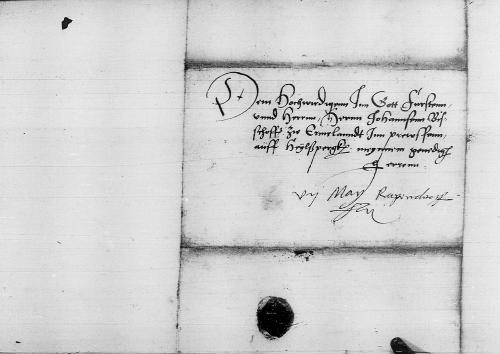 Dem Hochwirdigenn Inn Gott Fürstenn,
vnnd Herrnn, Herrnn Johannsenn Bis
schoffe zw Ermlanndt Inn preussenn,
auff Heylsspergk meynem genedigē
Herrnn
vij May Rapendorf